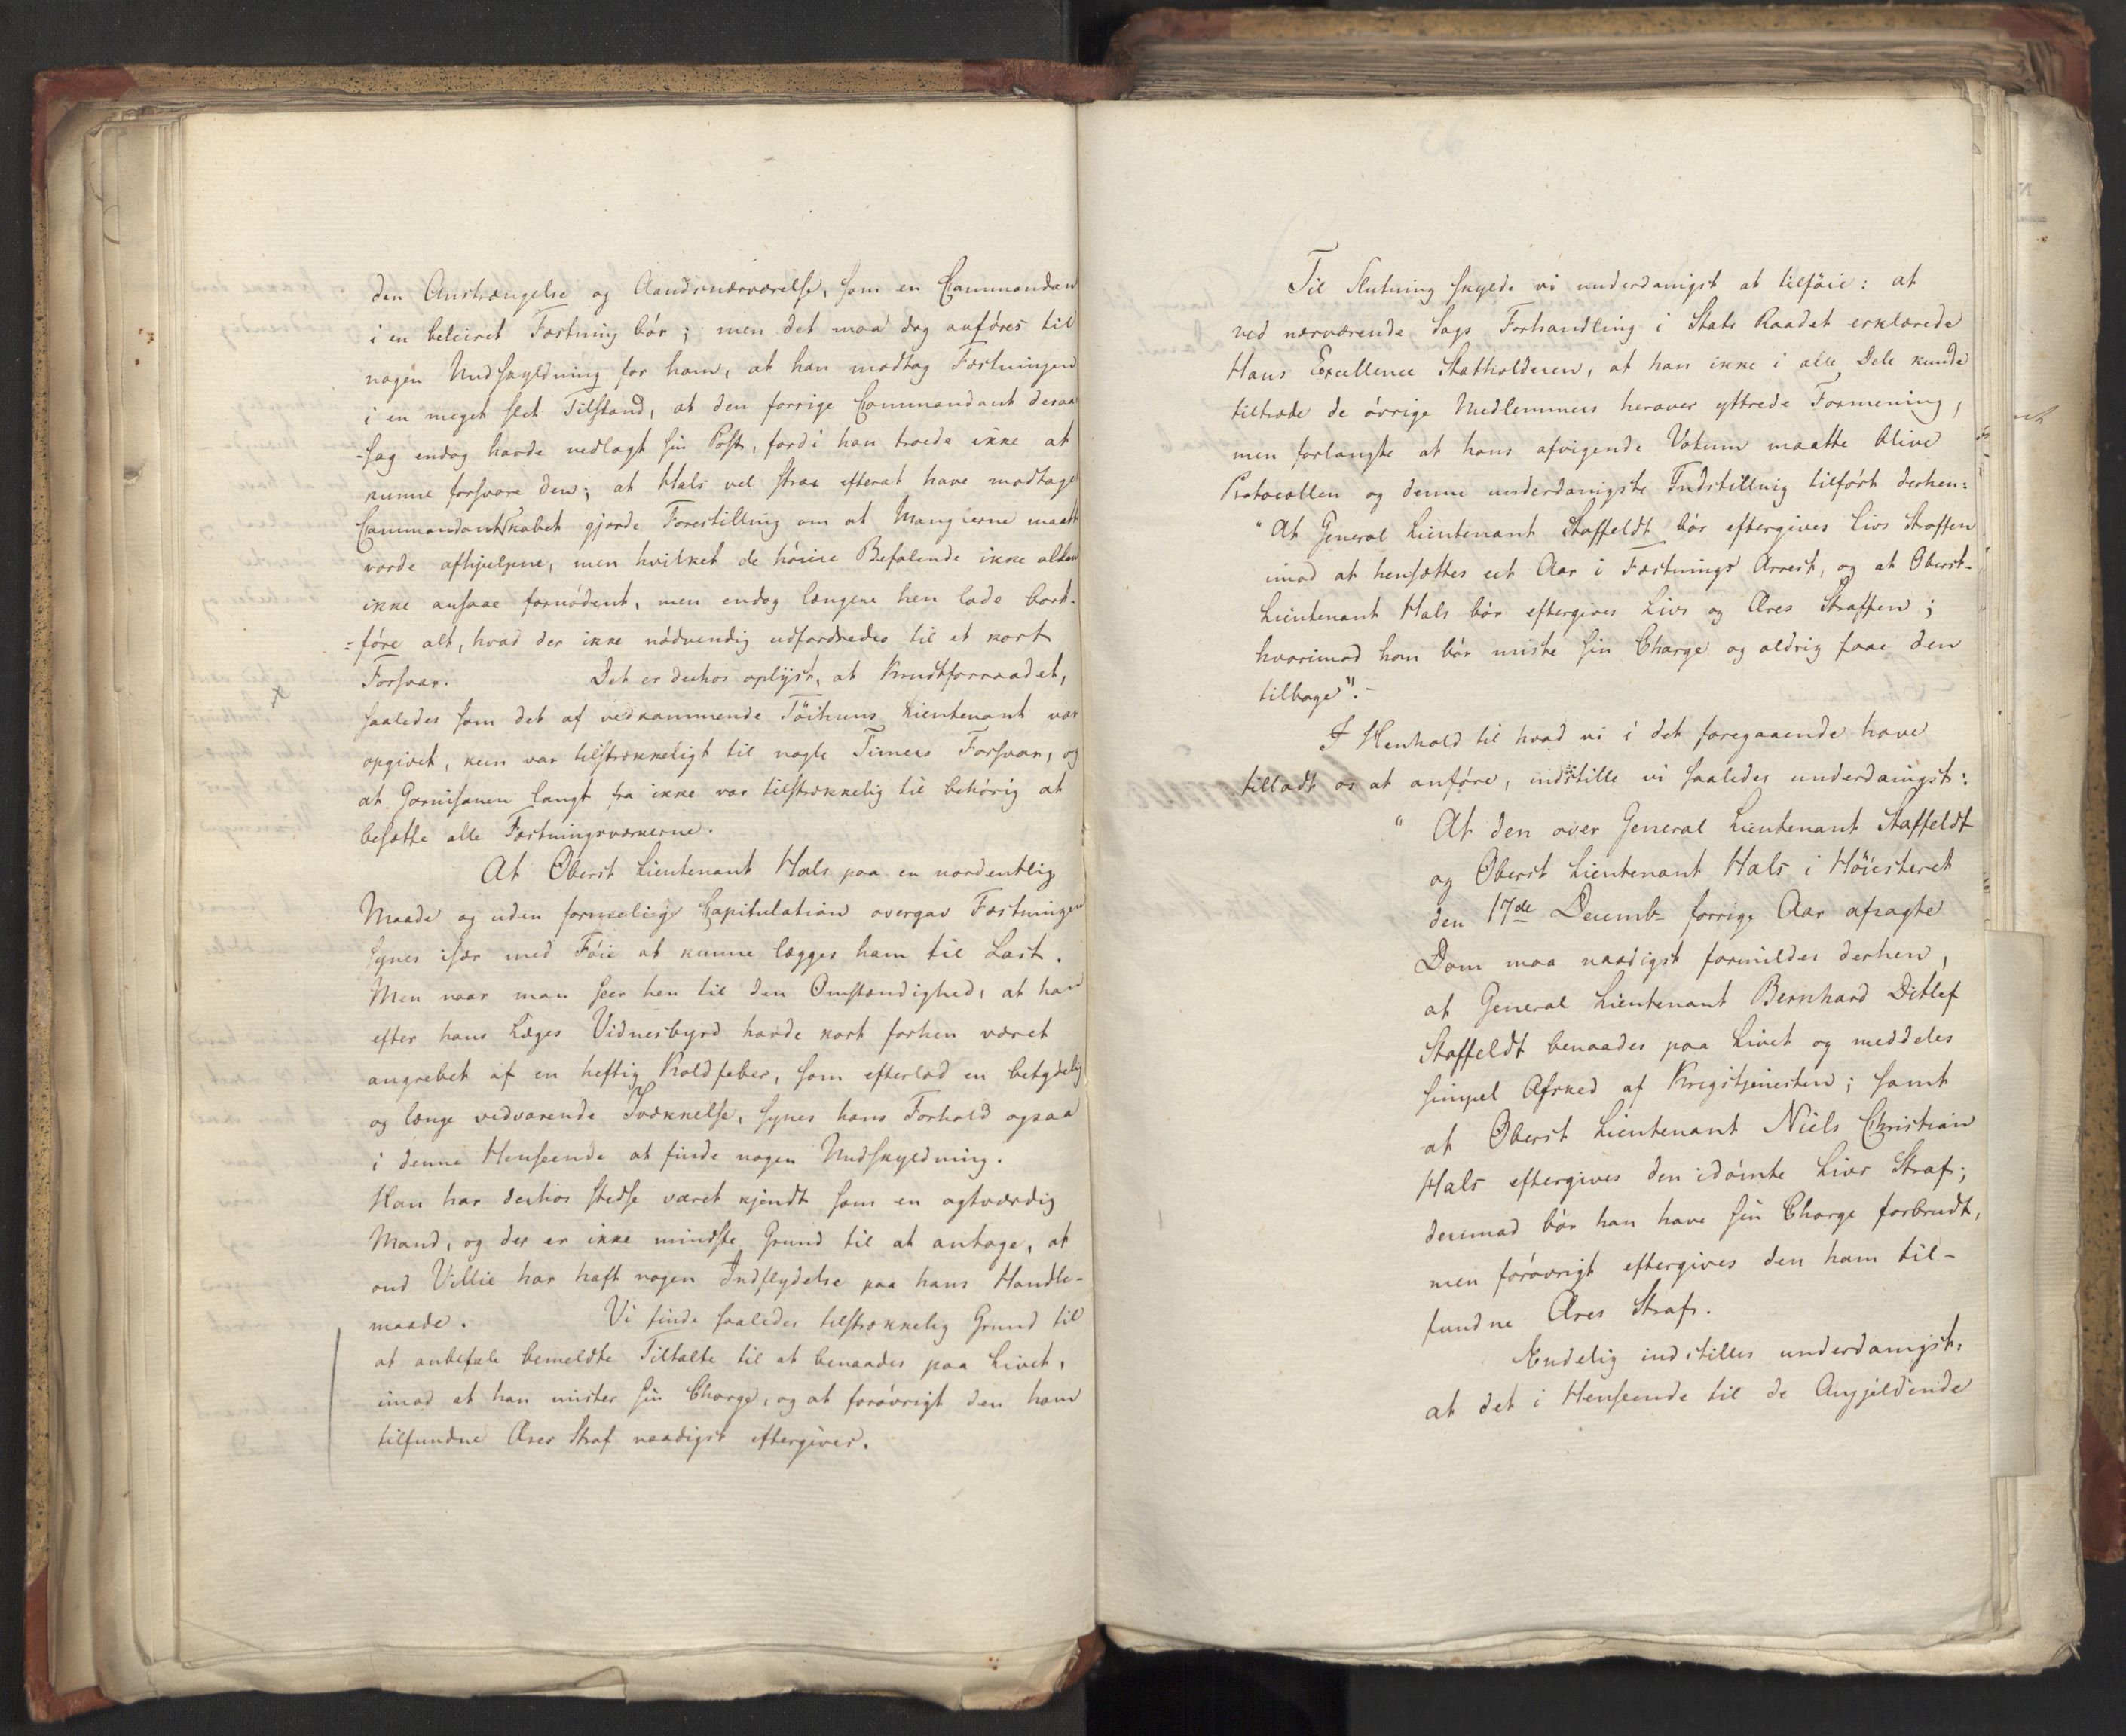 den Anstrængelse og Aandsnærværelse, som en Commandan
i en beleiret Fæstning bör; men det maa dog anföres til
nogen Undskyldning for ham, at han modtog Fæstningen
i en meget slet Tilstand, at den forrige Commandant desaar-
-sag endog havde nedlagt sin Post, fordi han troede ikke at
kunne forsvare den; at Hals vel strax efterat have modtaget
Commandantskabet gjorde Forestilling om at Manglerne maatte
vorde afhjulpne, men hvilket de höiere Befalende ikke allen
ikke ansaae fornödent, men endog længere hen lode bort-
=före alt, hvad der ikke nödvendig udfordredes til et kort
Forsvar. Det er derhos oplyst, at Krudtforraadet,
saaledes som det af vedkommende Töihuus Lieutenant var
opgivet, kun var tilstrækkeligt til nogle Timers Forsvar, og
at Garnisonen langt fra ikke var tilstrækkelig til behörig at
besætte alle Fæstningsværkerne.
At Oberst Lieutenant Hals paa en uordentlig
Maade og uden formelig Capitulation overgav Fæstningen
synes især med Föie at kunne lægges ham til Last.
Men naar man seer hen til den Omstændighed, at han
efter hans Læges Vidnesbyrd havde kort forhen været
angrebet af en heftig Koldfeber, som efterlod en betydelig
og længe vedvarende Svækkelse, synes hans Forhold ogsaa
i denne Henseende at finde nogen Undskyldning.
Han har derhos stedse været kjendt som en agtværdig
Mand, og der er ikke mindste Grund til at antage, at
ond Villie har haft nogen Indflydelse paa hans Handle-
maade. Vi finde saaledes tilstrækkelig Grund til
at anbefale bemeldte Tiltalte til at benaades paa Livet,
imod at han mister sin Charge, og at forövrigt den ham
tilfundne Æres Straf naadigst eftergives.
Til Slutning skylde vi underdanigst at tilföie: at
ved nærværende Sags Forhandling i Stats Raadet erklærede
Hans Excellence Statholderen, at han ikke i alle Dele kunde
tiltræde de övrige Medlemmers herover yttrede Formening,
men forlangte at hans afvigende Votum maatte blive
Protocollen og denne underdanigste Indstilling tilfört derhen:
"At General Lieutenant Staffeldt bör eftergives Livs Straffen
imod at hensættes eet Aar i Fæstnings Arrest, og at Oberst-
Lieutenant Hals bör eftergives Livs og Æres Straffen;
hvorimod han bör miste sin Charge og aldrig faae den
tilbage".-
I Henhold til hvad vi i det foregaaende have
tilladt os at anföre, indstille vi saaledes underdanigst:
" At den over General Lieutenant Staffeldt
og Oberst Lieutenant Hals i Höiesteret
den 17de Decemb- forrige Aar afsagte
Dom maa naadigst formildes derhen,
at General Lieutenant Bernhard Ditlef
Staffeldt benaades paa Livet og meddeles
simpel Afsked af Krigstjenesten; samt
at Oberst Lieutenant Niels Christian
Hals eftergives den idömte Livs Straf;
derimod bör han have sin Charge forbrudt,
men forövrigt eftergives den ham til-
fundne Æres Straf.
Endelig indstilles underdanigst:
at det i Henseende til de Angjeldende